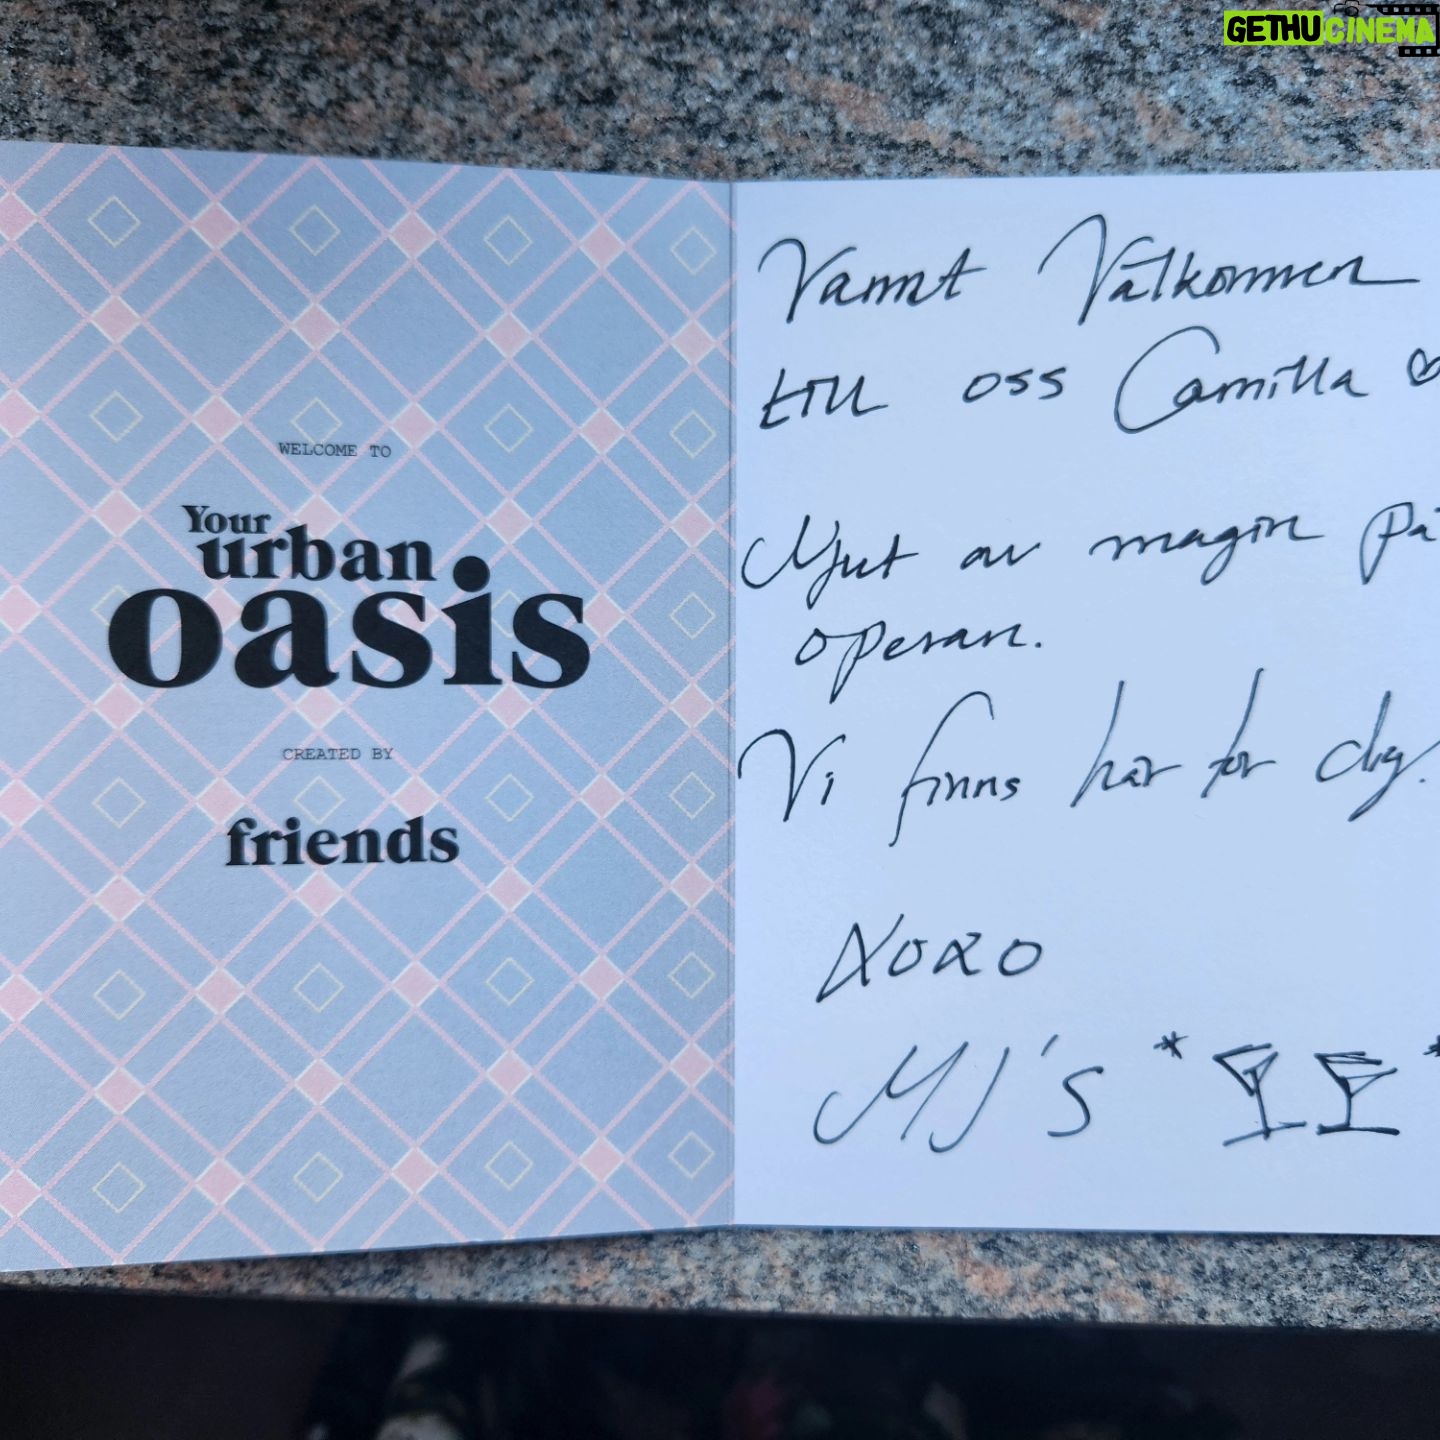 GETHUCINEMA
WELCOME TO
Your
urban
oasis
CREATED BY
friends
Varmt Välkommen
till oss Camilla ♡
Njut av magin på
operan.
Vi finns här för dig.
XOXO
MJ's * *